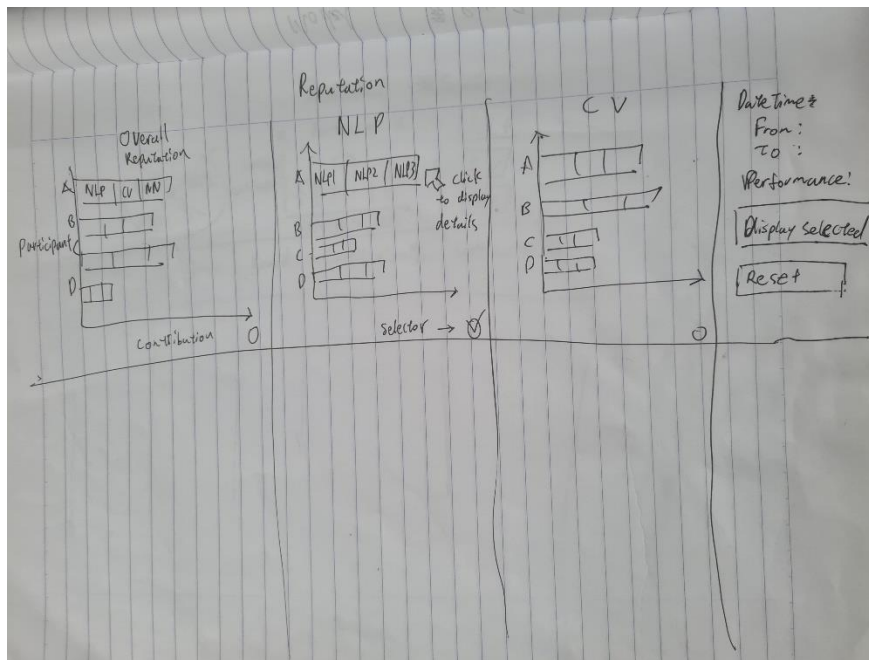 Reputation
Overall
Reputation
A
NLP
CV
NN
B
Participant
C
D
Contribution
NLP
A
NLP1
NLP2
NLP3
click
to display
details
B
C
D
Selector →
CV
A
B
C
D
DateTime:
From:
To:
Performance:
Display selected
Reset